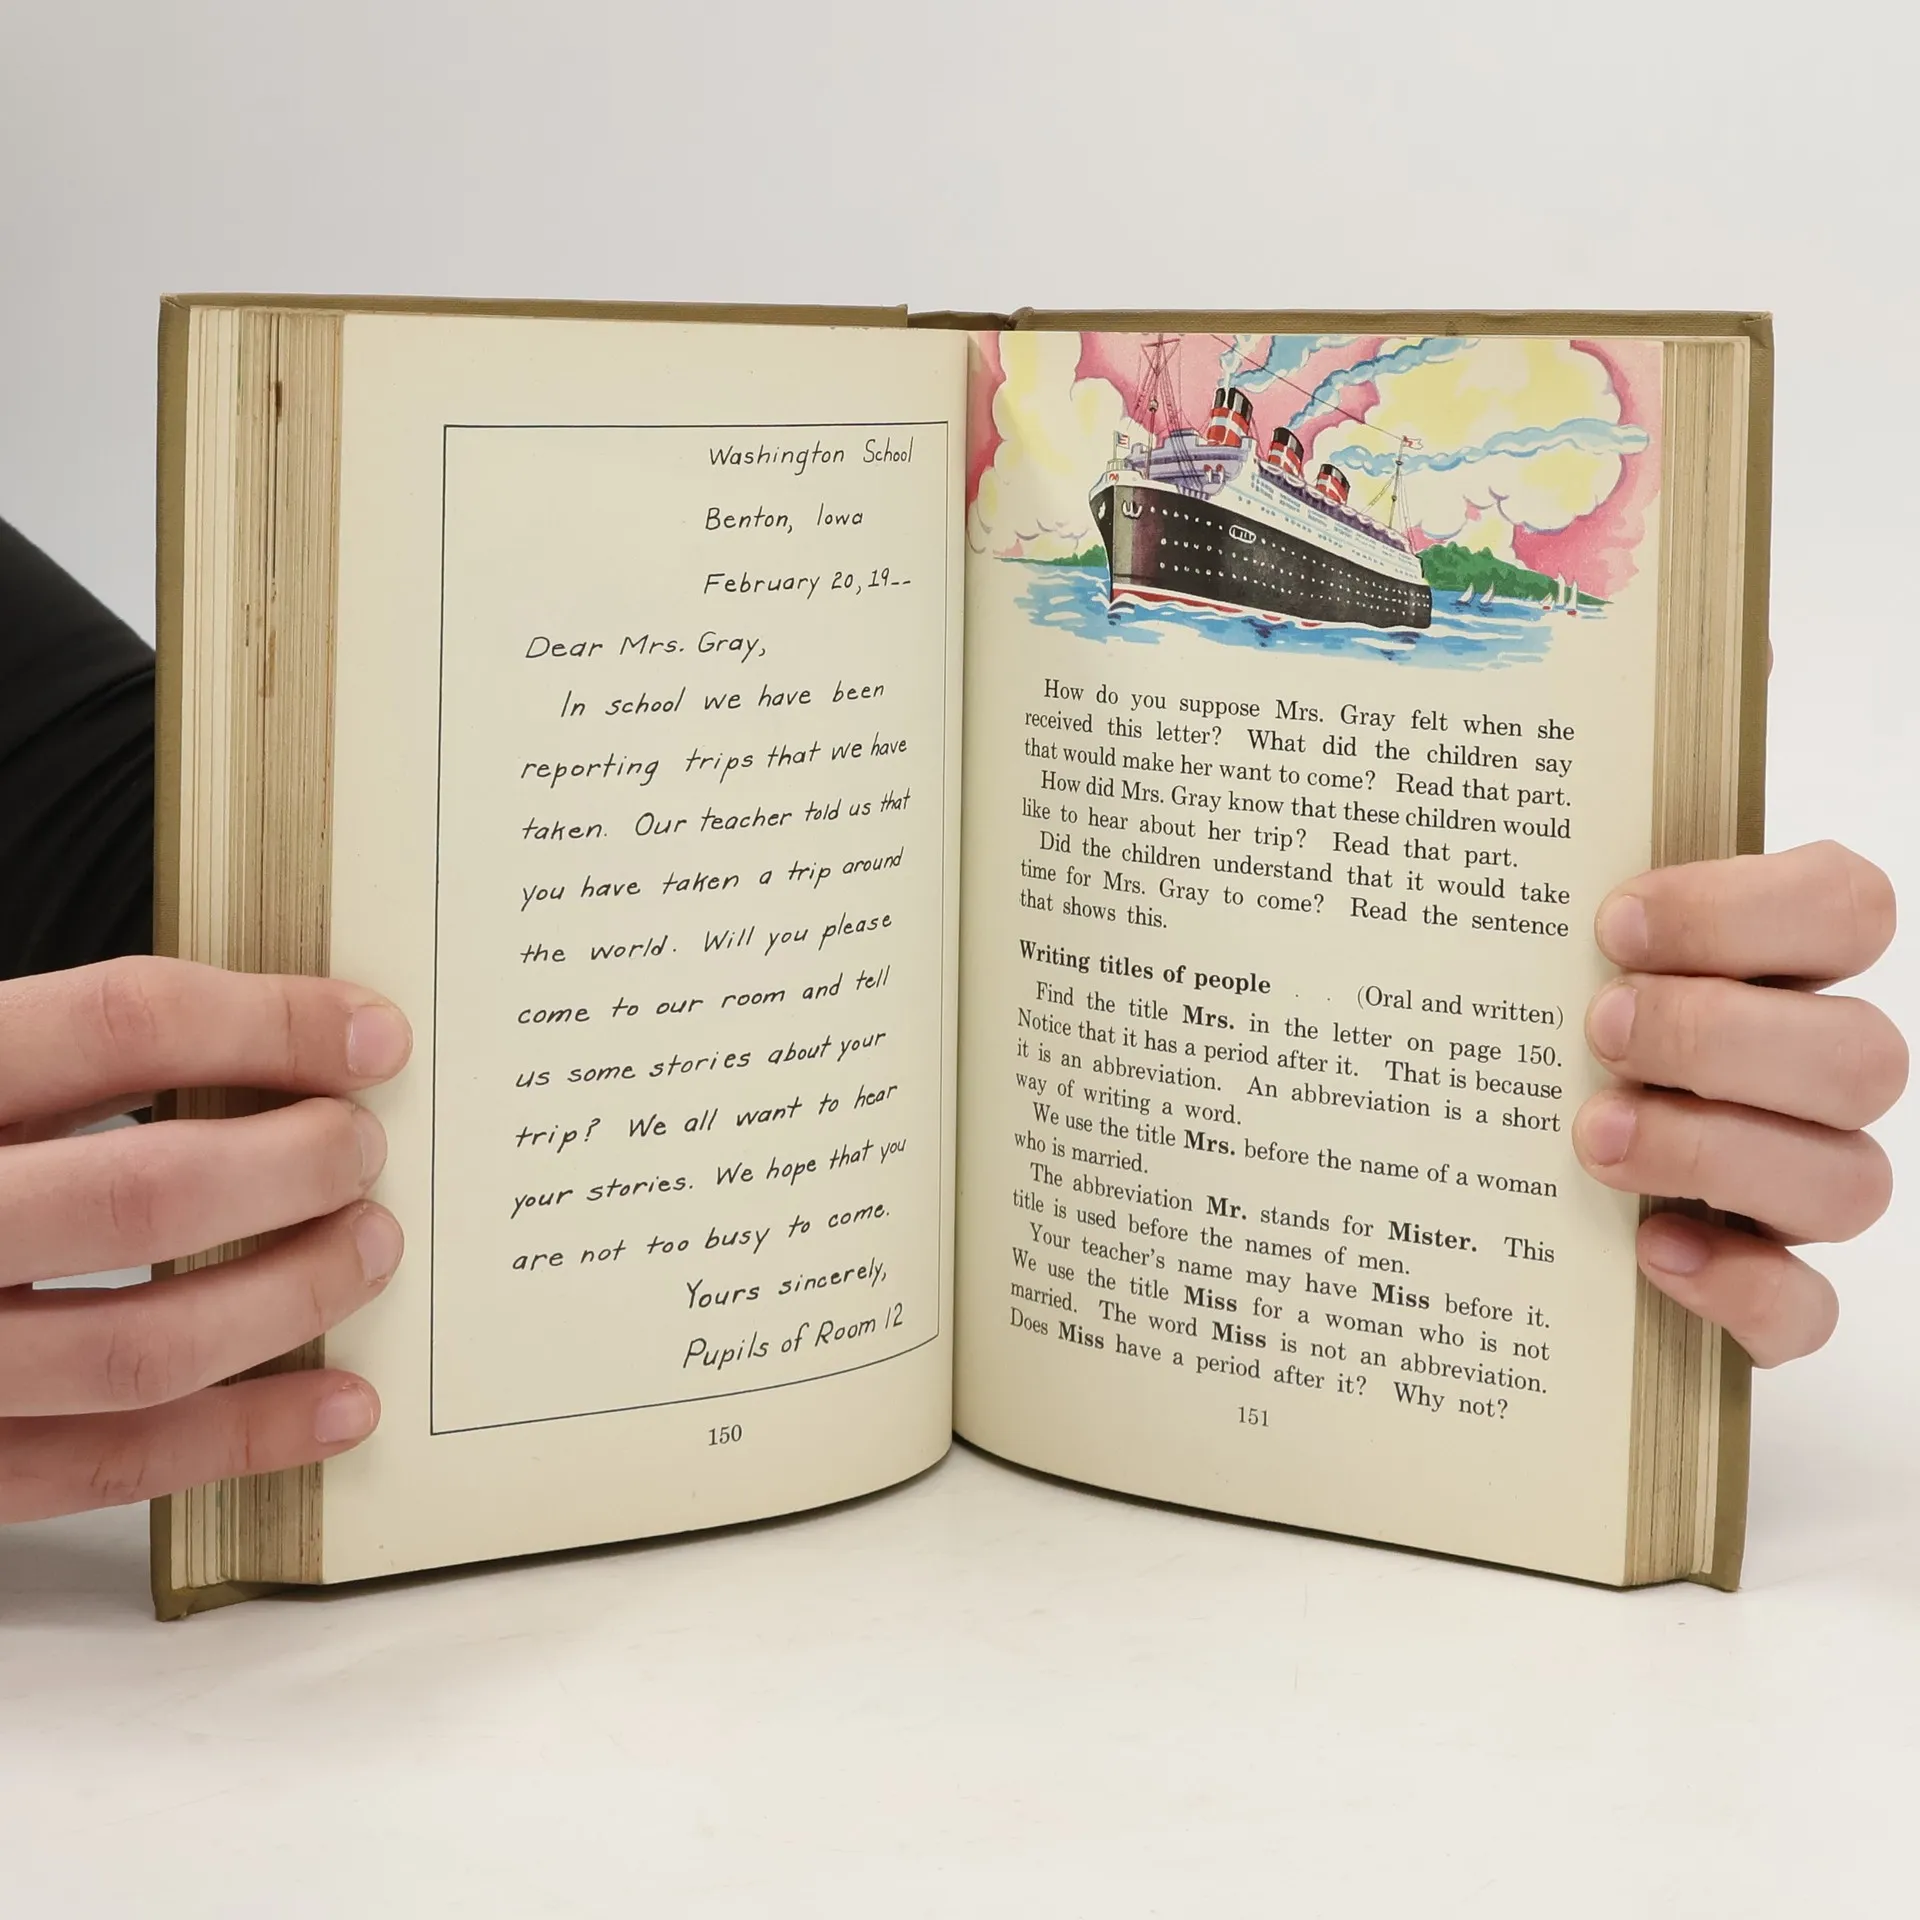 Washington School
Benton, Iowa
February 20, 19--
Dear Mrs. Gray,
In school we have been
reporting trips that we have
taken. Our teacher told us that
you have taken a trip around
the world. Will you please
come to our room and tell
us some stories about your
trip? We all want to hear
your stories. We hope that you
are not too busy to come.
Yours sincerely,
Pupils of Room 12
150
How do you suppose Mrs. Gray felt when she
received this letter? What did the children say
that would make her want to come? Read that part.
How did Mrs. Gray know that these children would
like to hear about her trip? Read that part.
Did the children understand that it would take
time for Mrs. Gray to come? Read the sentence
that shows this.
Writing titles of people . . (Oral and written)
Find the title Mrs. in the letter on page 150.
Notice that it has a period after it. That is because
it is an abbreviation. An abbreviation is a short
way of writing a word.
We use the title Mrs. before the name of a woman
who is married.
The abbreviation Mr. stands for Mister. This
title is used before the names of men.
Your teacher's name may have Miss before it.
We use the title Miss for a woman who is not
married. The word Miss is not an abbreviation.
Does Miss have a period after it? Why not?
151